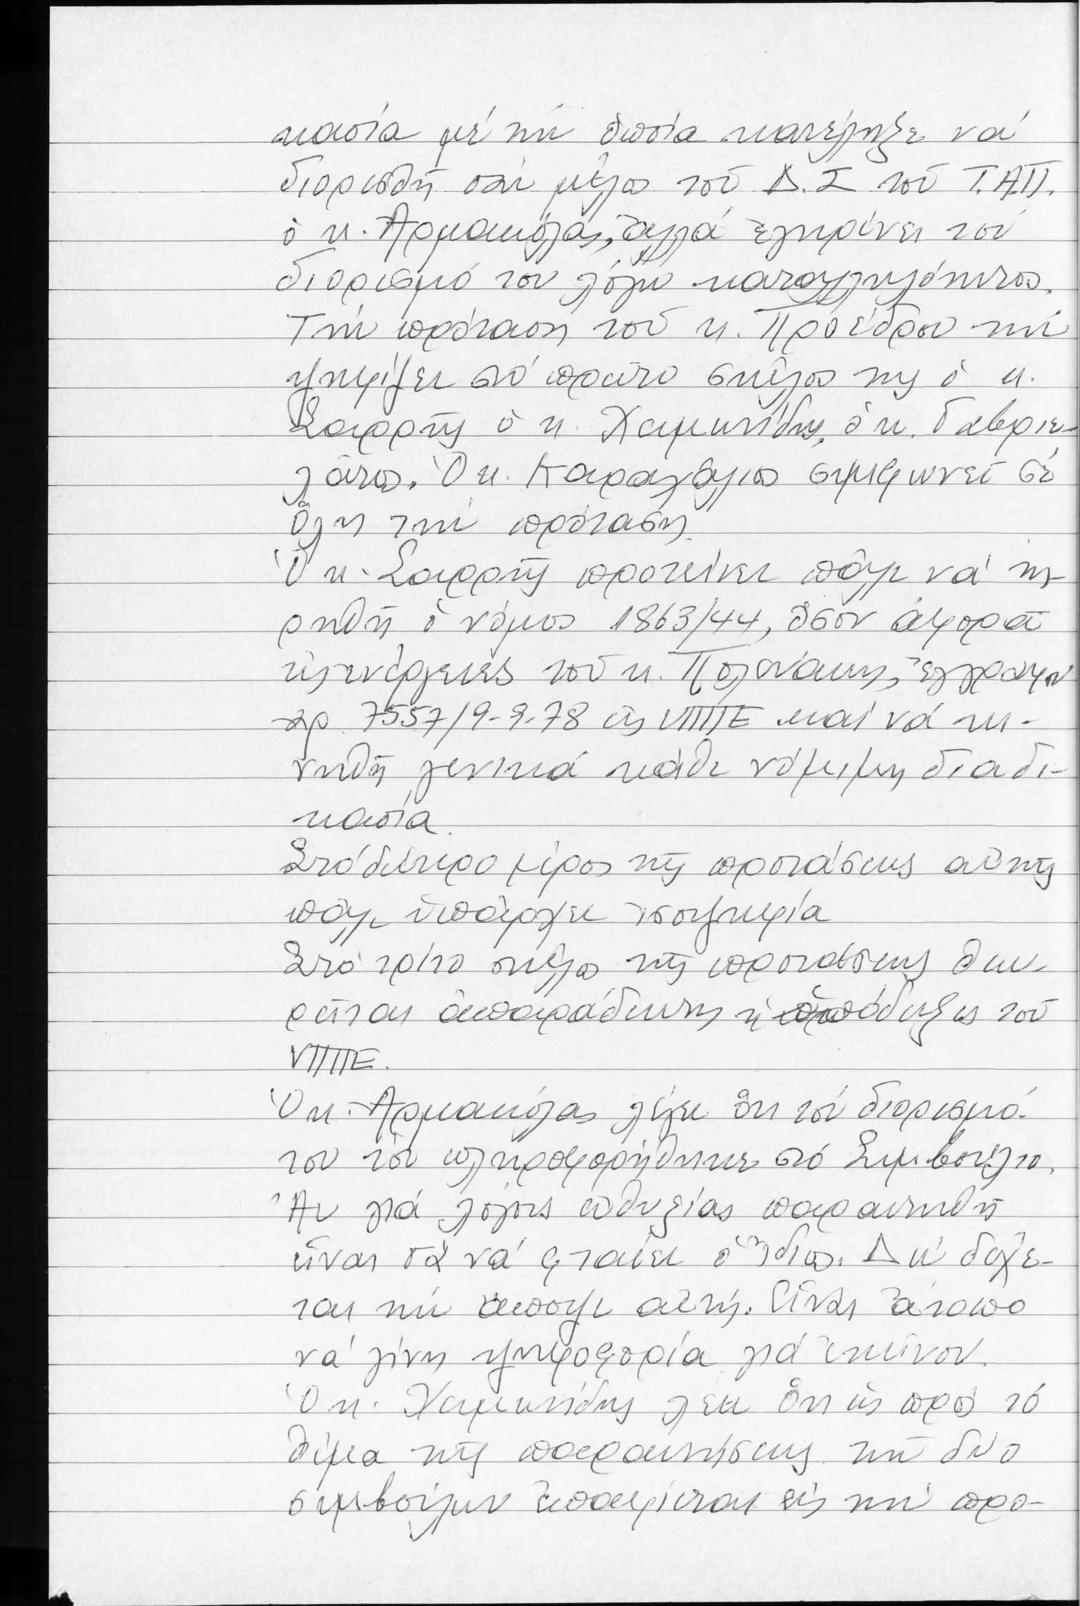 κασία μέ τήν ὁποία κατέληξε νά
διορισθῆ σάν μέλος τοῦ Δ.Σ τοῦ Τ.Α.Π.
ὁ κ. Ἀρμακόλας, ἀλλά ἐγκρίνει τόν
διορισμό του λόγω καταλληλότητος.
Τήν πρόταση τοῦ κ. Προέδρου τήν
ψηφίζει στό πρῶτο σκέλος της ὁ κ.
Σαρρῆς ὁ κ. Χαμωνίδης, ὁ κ. Γαβριε-
λάτος. Ὁ κ. Καραγκάλιος συμφωνεῖ σέ
ὅλη τήν πρόταση.
Ὁ κ. Σαρρῆς προτείνει πάλι νά τη-
ρηθῆ ὁ νόμος 1863/44, ὅσον ἀφορᾶ
τίς ἐνέργειες τοῦ κ. Πολονάκη, ἔγγραφον
ἀρ 7557/9-9-78 εἰς ΥΠΠΕ καί νά κι-
νηθῆ γενικά κάθε νόμιμη διαδι-
κασία.
Στό δεύτερο μέρος τῆς προτάσεως αὐτῆς
πάλι ὑπάρχει ἰσοψηφία
Στό τρίτο σκέλος τῆς προτάσεως θεω-
ρεῖται ἀπαράδεκτη ἡ ὑπόδειξις τοῦ
ΥΠΠΕ.
Ὁ κ. Ἀρμακόλας λέγει ὅτι τόν διορισμό
του τόν πληροφορήθηκε στό Συμβούλιο.
Ἄν γιά λόγους εὐθιξίας παραιτηθῆ
εἶναι σά νά φταίει ὁ ἴδιος. Δέν δέχε-
ται τήν ἄποψι αὐτή. Εἶναι ἄτοπο
νά γίνη ψηφοφορία γιά ἐκεῖνον.
Ὁ κ. Χαμωνίδης λέει ὅτι ὡς πρός τό
θέμα τῆς παραιτήσεως τῶν δύο
συμβούλων ἐπαφίεται εἰς τήν προ-